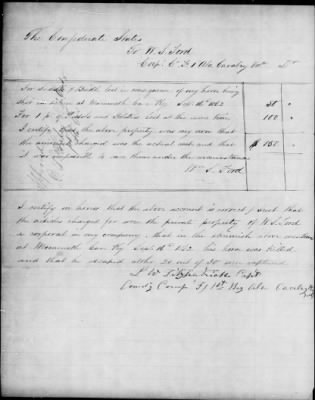 The Confederate States
To W. S. Ford
Corp. C. F 1 Ala Cavalry Dr
For Saddle & Bridle lost in consequence of my horse being
shot in action at Mammoth Cav Ky Sept 16th 1862 50 "
For 1 pr of Pistols and holsters lost at the same time 100 "
I certify that the above property was my own that
the amount charged was the actual cost and that $ 150 "
it was impossible to save them under the circumstances
Wm S. Ford
I certify on honor that the above account is correct & just that
the articles charged for were the private property of W. S. Ford
a corporal in my company, that in the skirmish above mentioned
at Mammoth Cav Ky Sept 16th 1862 his horse was killed,
and that he escaped altho 20 out of 30 men captured
Fitzpatrick Capt
Comdg Comp F, 1st Reg Ala Cavalry